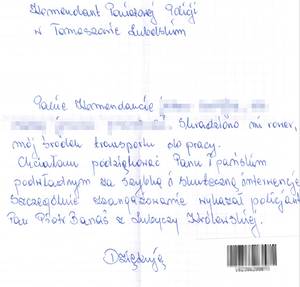 Komendant Powiatowej Policji
w Tomaszowie Lubelskim
Panie Komendancie
Skradziono mi rower,
mój środek transportu do pracy.
Chciałam podziękować Panu i pańskim
podwładnym za szybką i skuteczną interwencję
Szczególnie zaangażowanie wykazał policjant
Pan Piotr Banaś z Lubyczy Królewskiej.
Dziękuję